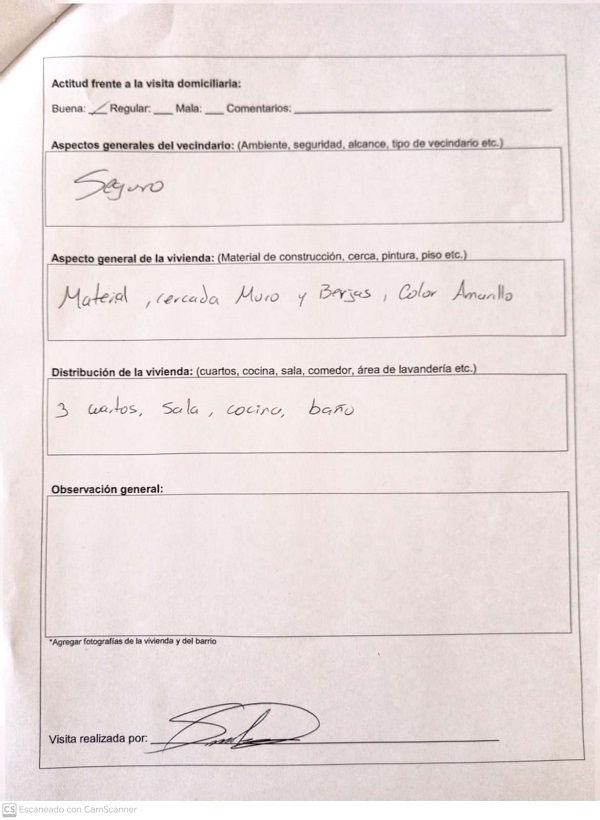 Actitud frente a la visita domiciliaria:
Buena: ✓ Regular: ___ Mala: ___ Comentarios: ___
Aspectos generales del vecindario: (Ambiente, seguridad, alcance, tipo de vecindario etc.)
Seguro
Aspecto general de la vivienda: (Material de construcción, cerca, pintura, piso etc.)
Material, cercada Muro y Berjas, Color Amarillo
Distribución de la vivienda: (cuartos, cocina, sala, comedor, área de lavandería etc.)
3 cuartos, Sala, cocina, baño
Observación general:
*Agregar fotografías de la vivienda y del barrio
Visita realizada por:
CS Escaneado con CamScanner